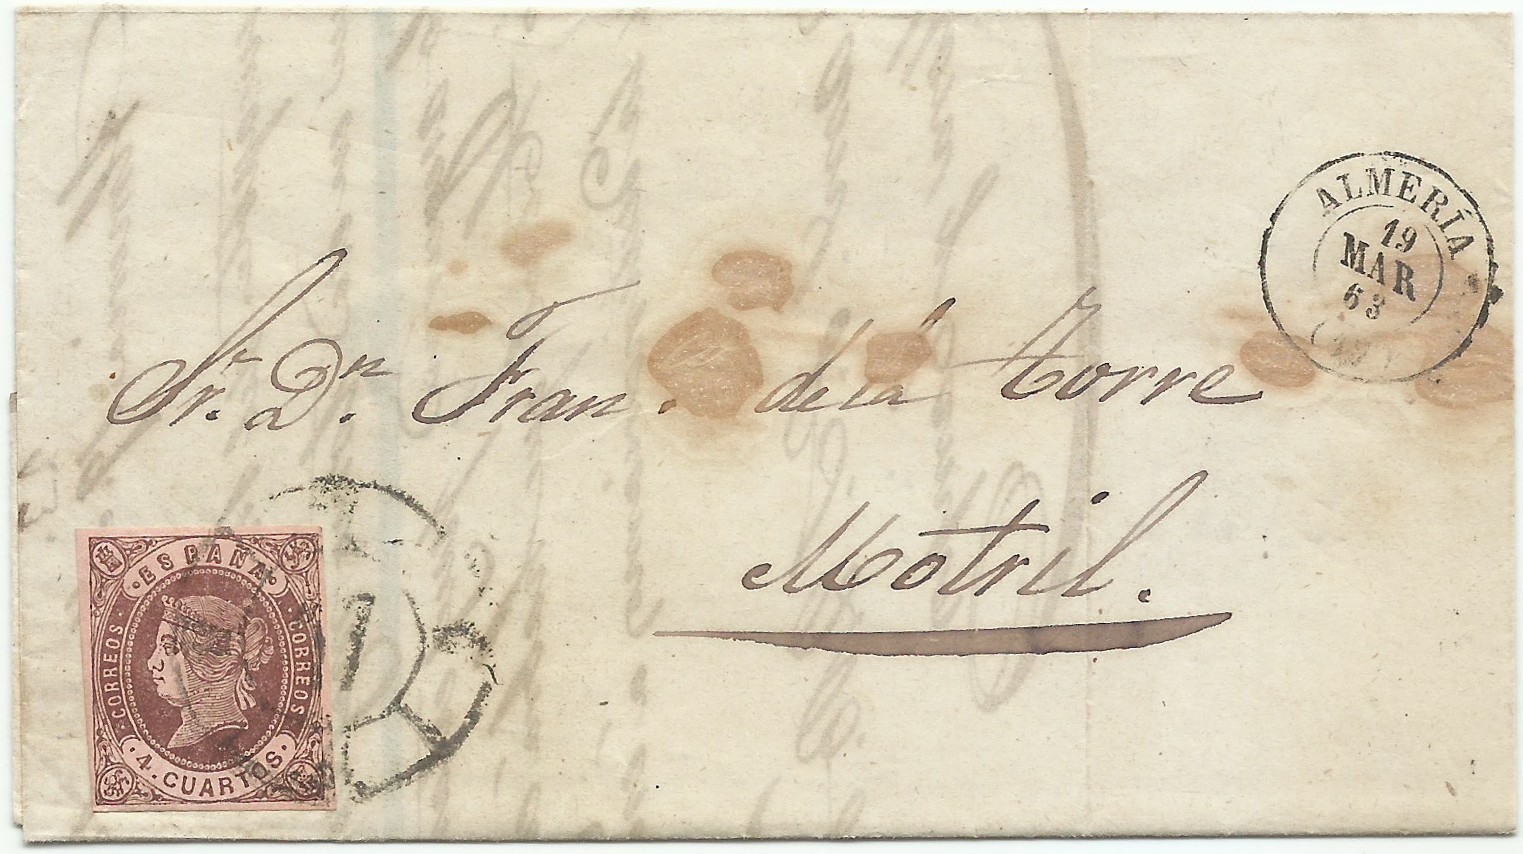 ALMERÍA
19
MAR
63
Sr. Dn. Fran. de la Torre
Motril.
ESPAÑA
CORREOS
CORREOS
4. CUARTOS